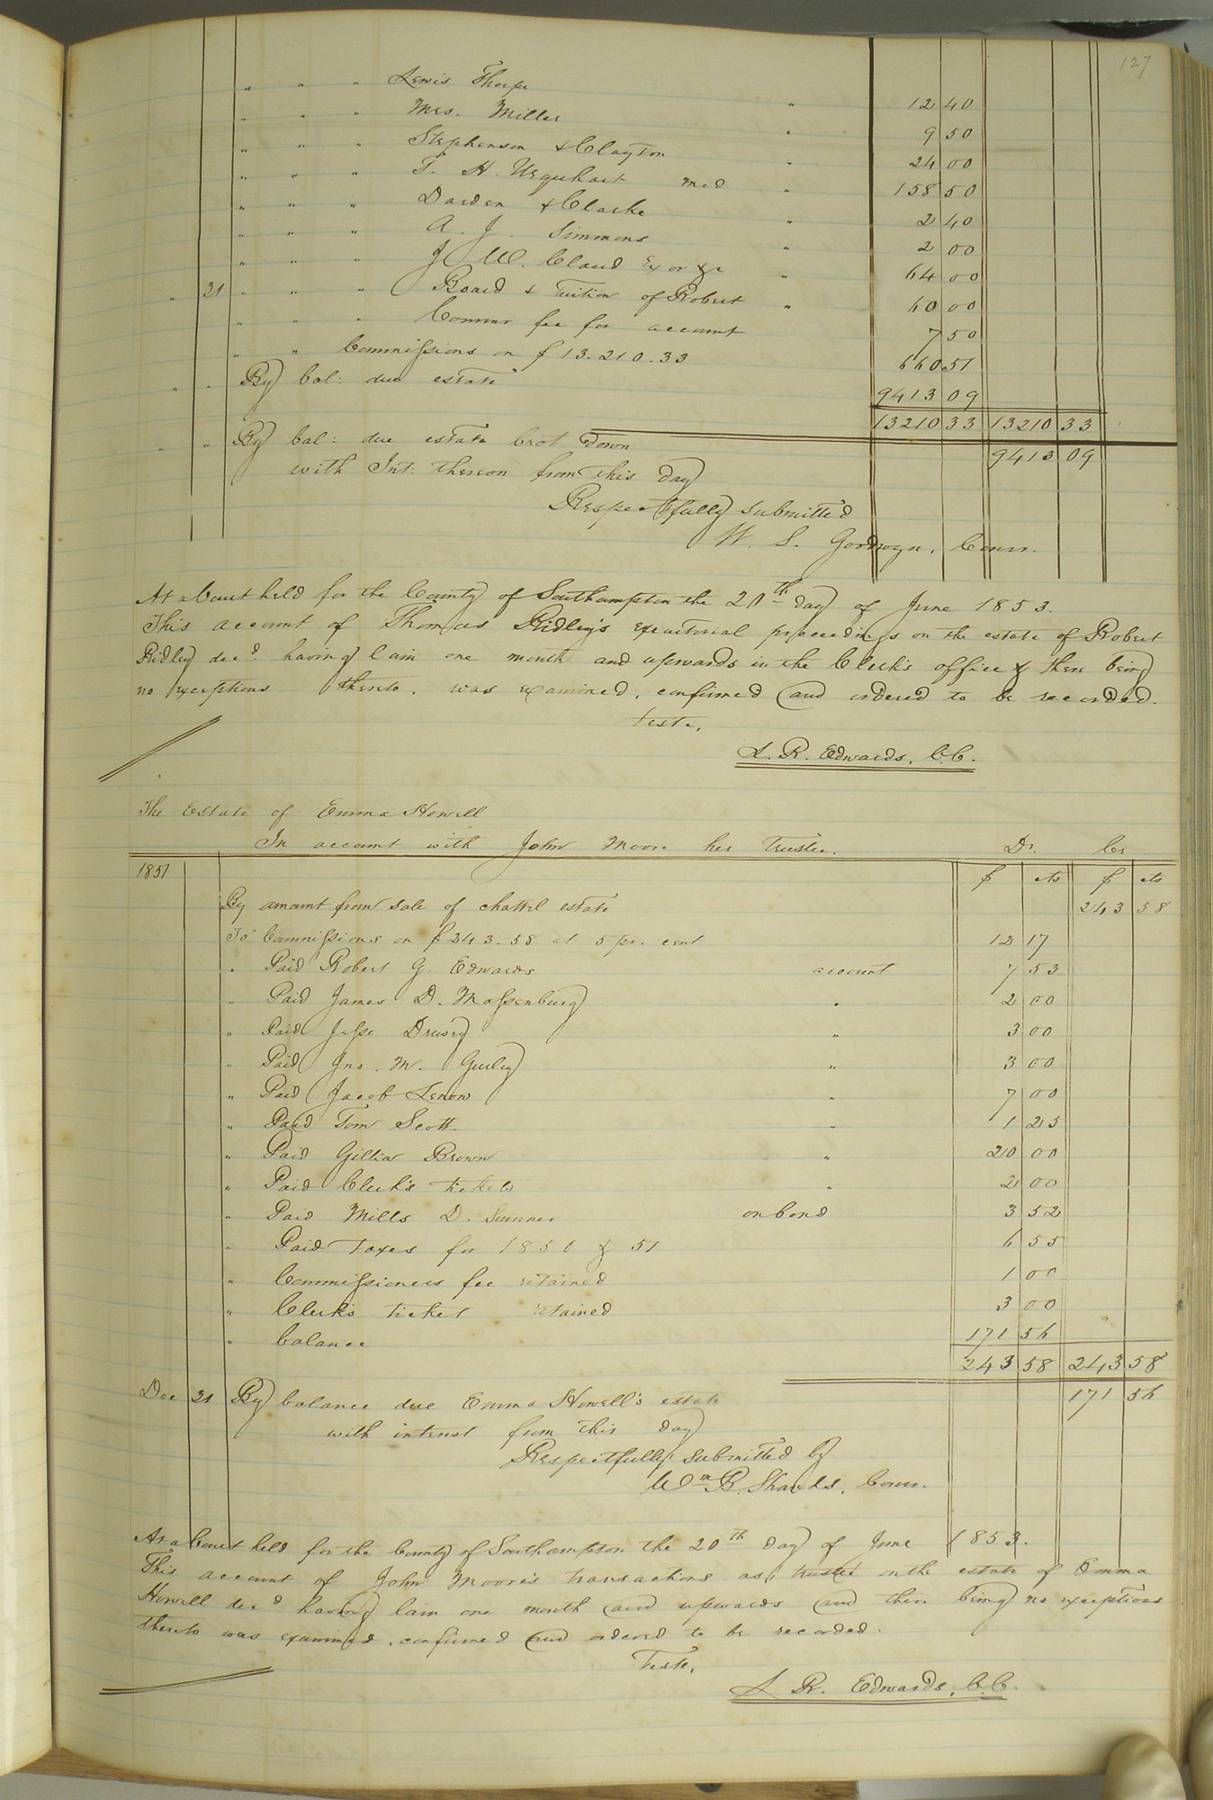 127
" " " Lewis Thorpe " 12 40
" " " Mrs. Miller " 9 50
" " " Stephenson & Clayton " 24 00
" " " T. H. Urquhart med " 158 50
" " " Darden & Clarke " 2 40
" " " A. J. Simmons " 2 00
" " " J. W. Claud Ex or &c " 64 00
" 21 " " " Board & Tuition of Robert " 60 00
" " " Commr fee for account 7 50
" " Commissions on $13.210.33 660.51
" " By bal: due estate 9413 09
13210 33 13210 33
" " By bal: due estate brot down 9413 09
with Int: thereon from this day
Respectfully submitted
W. S. Goodwyn, Comr.
At a Court held for the County of Southampton the 20th day of June 1853.
This account of Thomas Ridley's executorial proceedings on the estate of Robert
Ridley decd. having lain one month and upwards in the Clerk's office & there being
no exceptions thereto, was examined, confirmed and ordered to be recorded.
Teste,
L. R. Edwards, C.C.
The Estate of Emma Howell
In account with John Moore her Trustee. Dr. Cr
1851 $ cts $ cts
By amount from sale of chattel estate 243 58
To Commissions on $243.58 at 5 pr. cent 12 17
" Paid Robert G. Edwards account 7 53
" Paid James D. Massenburg " 2 00
" Paid Jesse Drewry " 3 00
" Paid Jno. M. Gurley " 3 00
" Paid Jacob Lenow " 7 00
" Paid Tom Scott. " 1 25
" Paid Gillian Brown " 20 00
" Paid Clerk's tickets " 2 00
" Paid Mills D. Sumner on bond 3 52
" Paid taxes for 1850 & 51 6 55
" Commissioners fee retained 1 00
" Clerk's ticket retained 3 00
" balance 171 56
243 58 243 58
Dec 21 By balance due Emma Howell's estate 171 56
with interest from this day
Respectfully submitted by
Wm R. Shands, Comr.
At a Court held for the County of Southampton the 20th day of June 1853.
This account of John Moore's transactions as trustee on the estate of Emma
Howell decd having lain one month and upwards and there being no exceptions
thereto was examined, confirmed and ordered to be recorded.
Teste,
L R. Edwards, C.C.